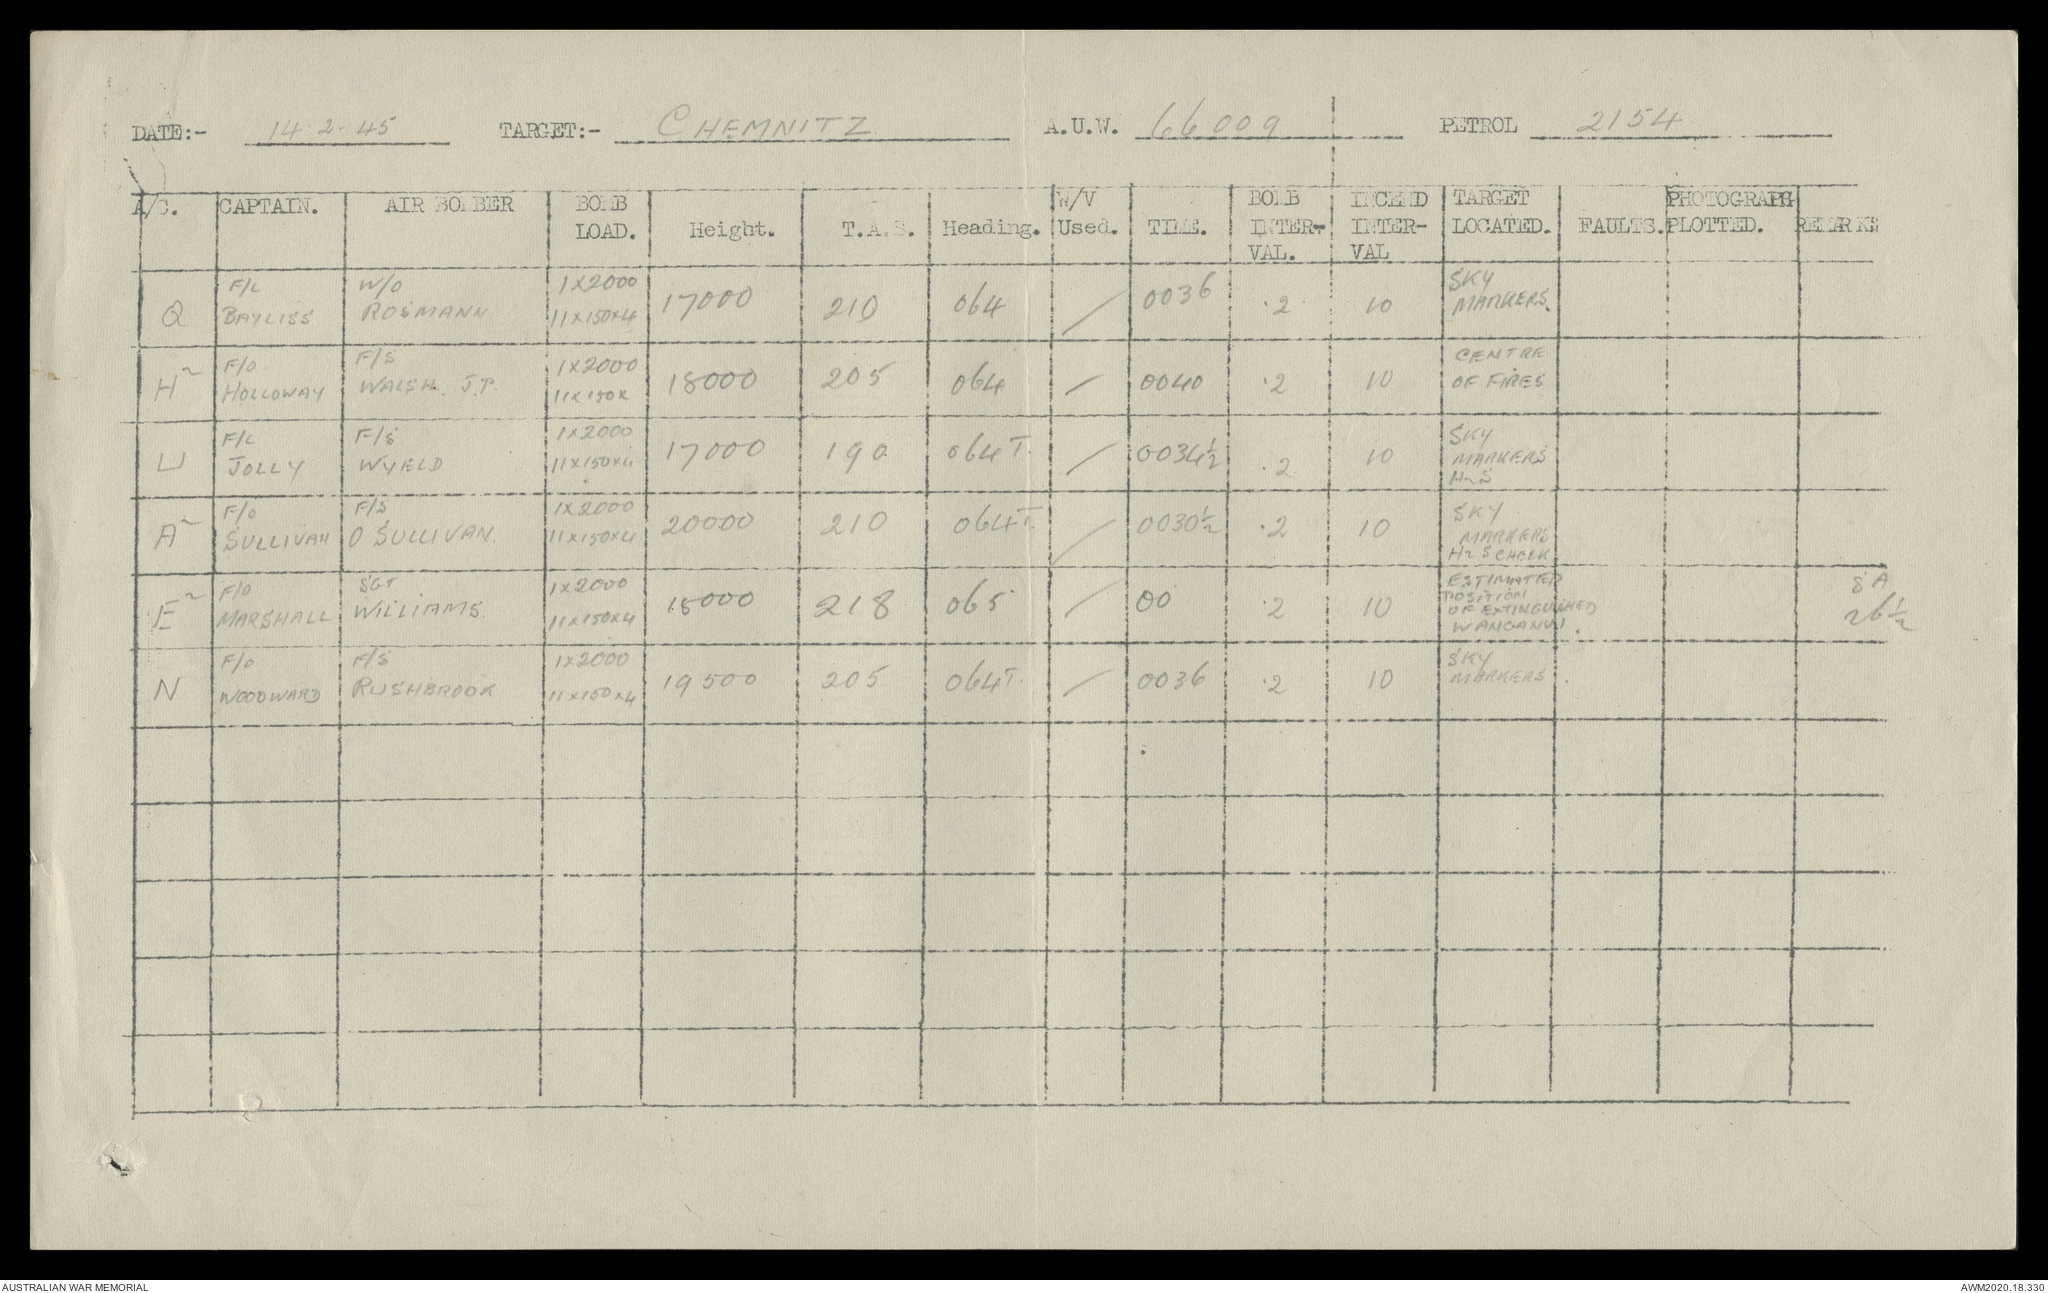 DATE:- 14.2.45 TARGET:- CHEMNITZ A.U.W. 66009 PETROL 2154
A/C. CAPTAIN. AIR BOMBER BOMB LOAD. Height. T.A.S. Heading. W/V Used. TIME. BOMB INTER-VAL. INCEND INTER-VAL TARGET LOCATED. FAULTS. PHOTOGRAPH PLOTTED. REMARKS
Q F/L BAYLISS W/O ROSMANN 1X2000 11X150X4 17000 210 064 / 0036 .2 10 SKY MARKERS.
H2 F/O HOLLOWAY F/S WALSH. J.P. 1X2000 11X150X 18000 205 064 / 0040 .2 10 CENTRE OF FIRES
U F/L JOLLY F/S WYELD 1X2000 11X150X4 17000 190 064T. / 0034½ .2 10 SKY MARKERS H2S
A2 F/O SULLIVAN F/S O SULLIVAN. 1X2000 11X150X4 20000 210 064T. / 0030½ .2 10 SKY MARKERS H2S CHECK
E2 F/O MARSHALL SGT WILLIAMS. 1X2000 11X150X4 18000 218 065 / 00 .2 10 ESTIMATED POSITION OF EXTINGUISHED WANGANUI. 8A 26½
N F/O WOODWARD F/S RUSHBROOK 1X2000 11X150X4 19500 205 064T. / 0036 .2 10 SKY MARKERS.
AUSTRALIAN WAR MEMORIAL AWM2020.18.330